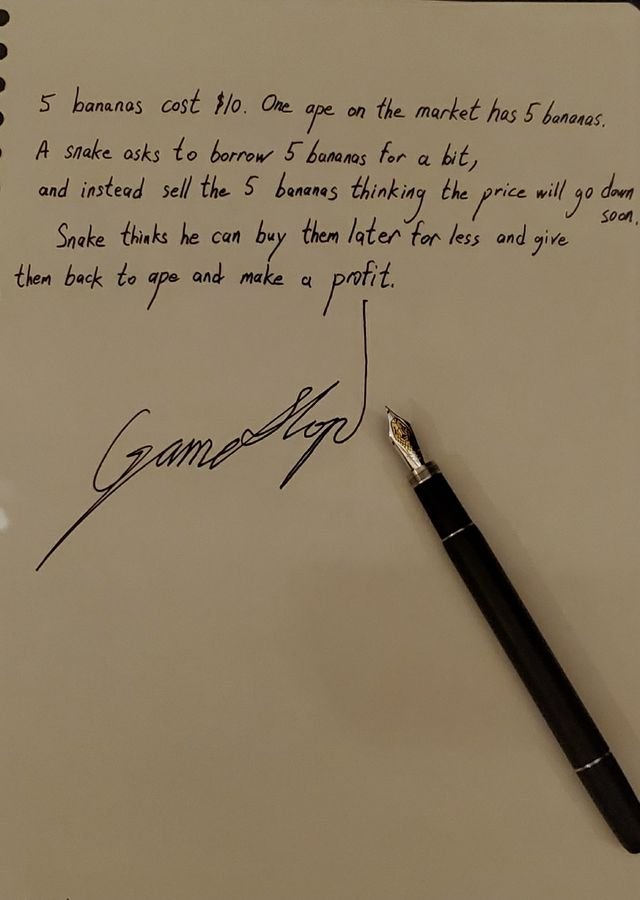 5 bananas cost $10. One ape on the market has 5 bananas.
A snake asks to borrow 5 bananas for a bit,
and instead sell the 5 bananas thinking the price will go down
soon.
Snake thinks he can buy them later for less and give
them back to ape and make a profit.
GameStop